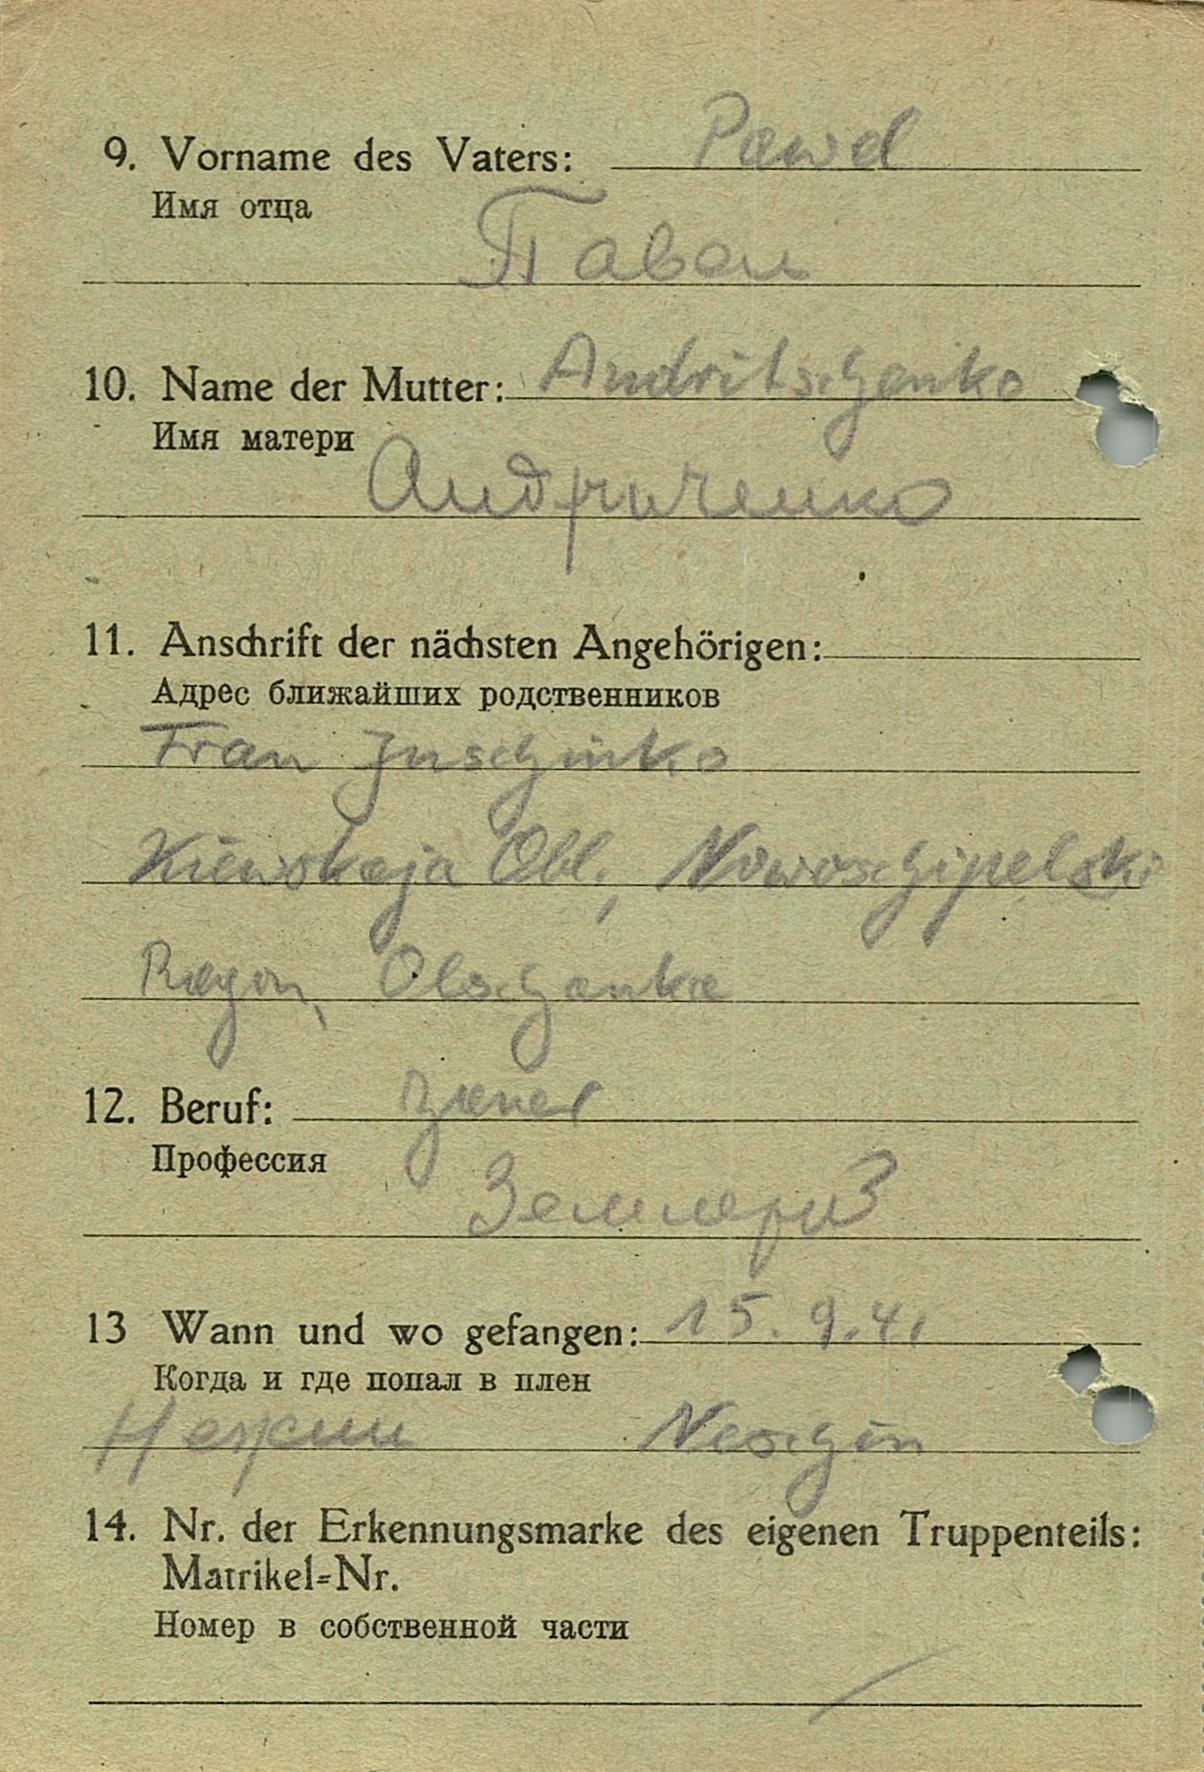 9. Vorname des Vaters: Pawel
Имя отца
Павел
10. Name der Mutter: Andritschenko
Имя матери
Андриченко
11. Anschrift der nächsten Angehörigen:
Адрес ближайших родственников
Frau
Kiewskaja Obl.,
Rayon, Olschanka
12. Beruf:
Профессия
13 Wann und wo gefangen: 15. 9. 41
Когда и где попал в плен
Нежин Neschin
14. Nr. der Erkennungsmarke des eigenen Truppenteils:
Matrikel=Nr.
Номер в собственной части